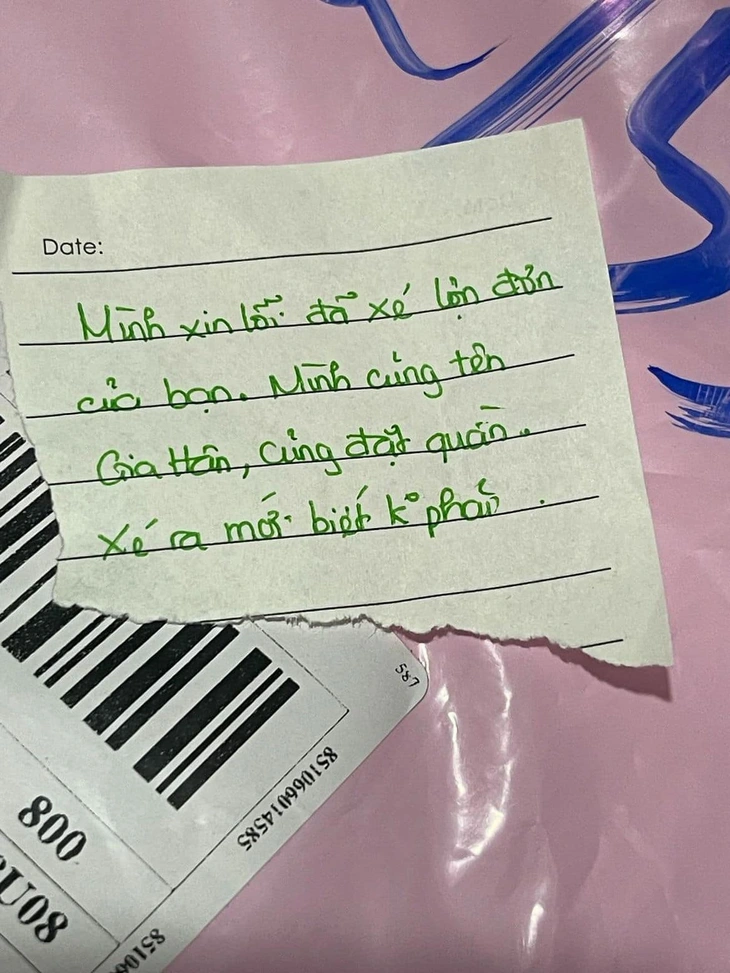 Date:
Mình xin lỗi đã xé lộn đơn
của bạn. Mình cũng tên
Gia Hân, cũng đặt quần.
Xé ra mới biết k° phải.
587
851066014585
800